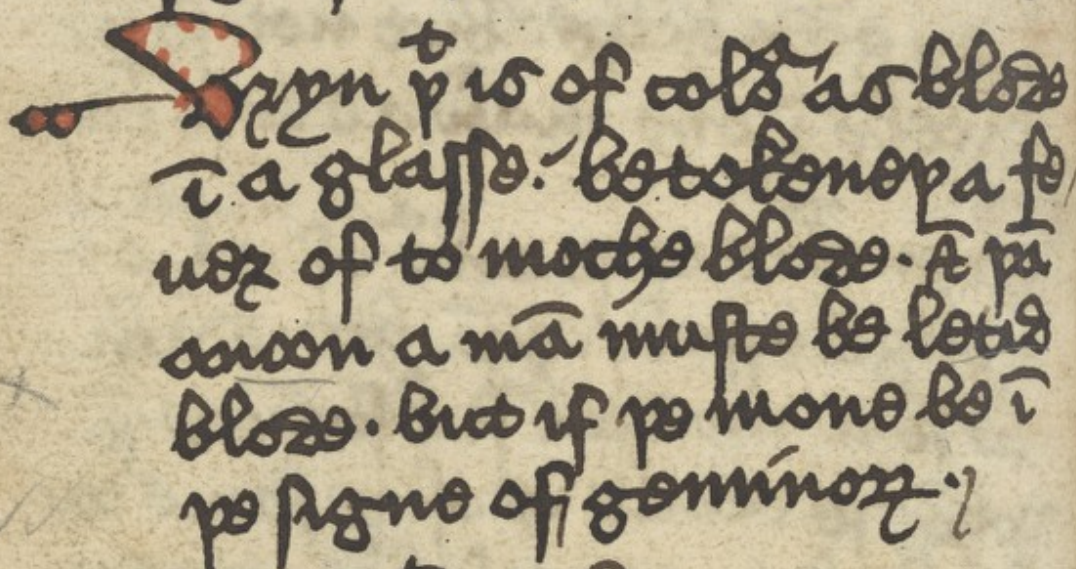 Uryn þͭ is of coloͬ as blode
ī a glasse: betokeneþ a fe/
uer of to moche blode. & þā
anoon a mā muste be letid
blode. but if þe mone be ī
þe signe of geminoꝝ.